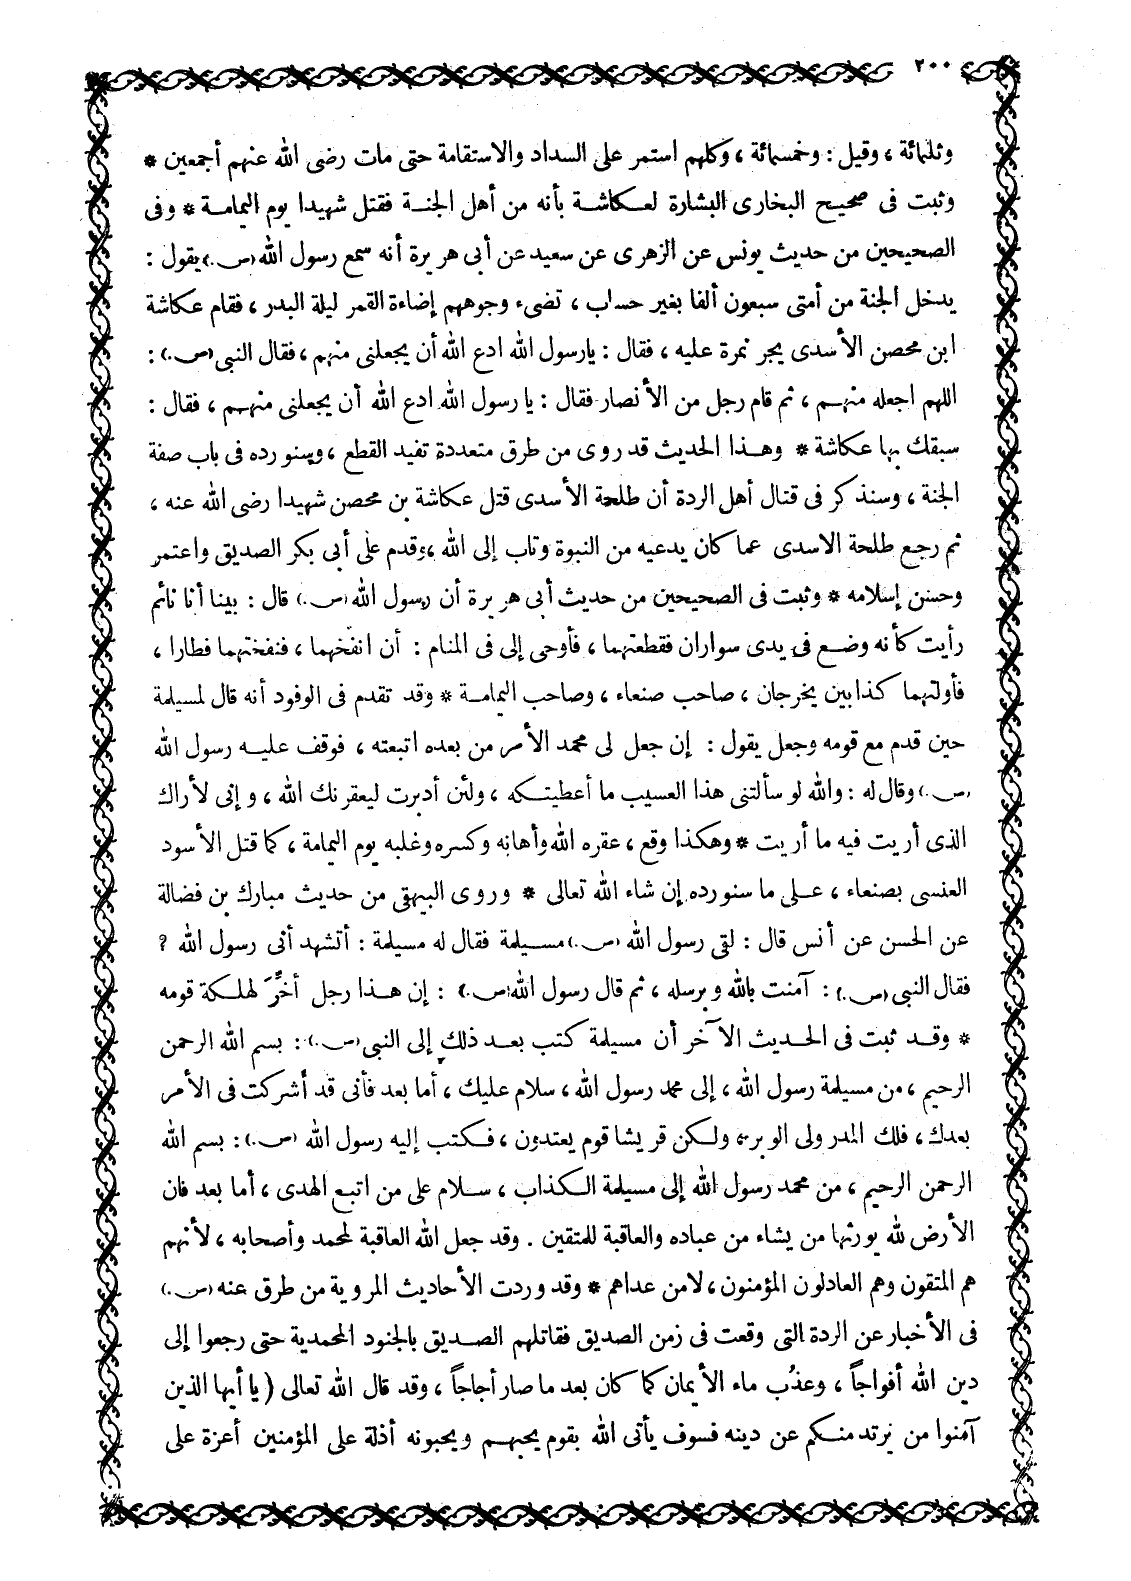 ٢٠٠
وثلثمائة ، وقيل : وخمسمائة ، وكلهم استمر على السداد والاستقامة حتى مات رضى الله عنهم أجمعين *
وثبت فى صحيح البخارى البشارة لعكاشة بأنه من أهل الجنة فقتل شهيدا يوم اليمامة * وفى
الصحيحين من حديث يونس عن الزهرى عن سعيد عن أبى هريرة أنه سمع رسول الله (ص.) يقول :
يدخل الجنة من أمتى سبعون ألفا بغير حساب ، تضىء وجوههم إضاءة القمر ليلة البدر ، فقام عكاشة
ابن محصن الأسدى يجر نمرة عليه ، فقال : يارسول الله ادع الله أن يجعلنى منهم ، فقال النبى (ص.) :
اللهم اجعله منهم ، ثم قام رجل من الأنصار فقال : يا رسول الله ادع الله أن يجعلنى منهم ، فقال :
سبقك بها عكاشة * وهذا الحديث قد روى من طرق متعددة تفيد القطع ، وسنورده فى باب صفة
الجنة ، وسنذكر فى قتال أهل الردة أن طلحة الأسدى قتل عكاشة بن محصن شهيدا رضى الله عنه ،
ثم رجع طلحة الاسدى عما كان يدعيه من النبوة وتاب إلى الله ، وقدم على أبى بكر الصديق واعتمر
وحسن إسلامه * وثبت فى الصحيحين من حديث أبى هريرة أن رسول الله (ص.) قال : بينا أنا نائم
رأيت كأنه وضع فى يدى سواران فقطعتهما ، فأوحى إلى فى المنام : أن انفخهما ، فنفختهما فطارا ،
فأولتهما كذابين يخرجان ، صاحب صنعاء ، وصاحب اليمامة * وقد تقدم فى الوفود أنه قال لمسيلمة
حين قدم مع قومه وجعل يقول : إن جعل لى محمد الأمر من بعده اتبعته ، فوقف عليه رسول الله
(ص.) وقال له : والله لو سألتنى هذا العسيب ما أعطيتكه ، ولئن أدبرت ليعقرنك الله ، وإنى لأراك
الذى أريت فيه ما أريت * وهكذا وقع ، عقره الله وأهانه وكسره وغلبه يوم اليمامة ، كما قتل الأسود
العنسى بصنعاء ، على ما سنورده إن شاء الله تعالى * وروى البيهقى من حديث مبارك بن فضالة
عن الحسن عن أنس قال : لقى رسول الله (ص.) مسيلمة فقال له مسيلمة : أتشهد أنى رسول الله ؟
فقال النبى (ص.) : آمنت بالله وبرسله ، ثم قال رسول الله (ص.) : إن هذا رجل أخِّرَ لهلكة قومه
* وقد ثبت فى الحديث الآخر أن مسيلمة كتب بعد ذلك إلى النبى (ص.) : بسم الله الرحمن
الرحيم ، من مسيلمة رسول الله ، إلى محمد رسول الله ، سلام عليك ، أما بعد فأنى قد أشركت فى الأمر
بعدك ، فلك المدر ولى الوبر، ولكن قريشا قوم يعتدون ، فكتب إليه رسول الله (ص.) : بسم الله
الرحمن الرحيم ، من محمد رسول الله إلى مسيلمة الكذاب ، سلام على من اتبع الهدى ، أما بعد فان
الأرض لله يورثها من يشاء من عباده والعاقبة للمتقين . وقد جعل الله العاقبة لمحمد وأصحابه ، لأنهم
هم المتقون وهم العادلون المؤمنون ، لامن عداهم * وقد وردت الأحاديث المروية من طرق عنه (ص.)
فى الأخبار عن الردة التى وقعت فى زمن الصديق فقاتلهم الصديق بالجنود المحمدية حتى رجعوا إلى
دين الله أفواجاً ، وعذُب ماء الأيمان كما كان بعد ما صار أجاجاً ، وقد قال الله تعالى ( يا أيها الذين
آمنوا من يرتد منكم عن دينه فسوف يأتى الله بقوم يحبهم ويحبونه أذلة على المؤمنين أعزة على